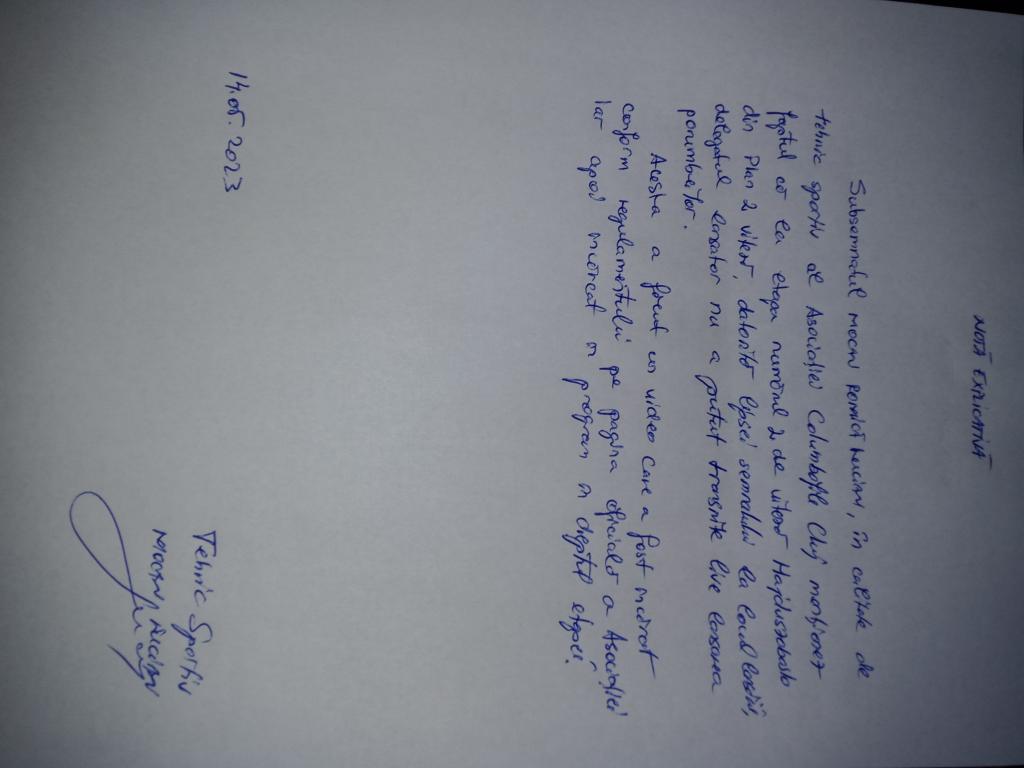 NOTĂ EXPLICATIVĂ
Subsemnatul Mocan Lucian, în calitate de
tehnic sportiv al Asociației Columbofile Cluj menționez
faptul că la etapa numărul 2 de viteză Hajduszoboszlo
din Plan 2 viteză, datorită lipsei semnalului la locul lansării,
delegatul lansator nu a putut transmite live lansarea
porumbeilor.
Acesta a făcut un video care a fost încărcat
conform regulamentului pe pagina oficială a Asociației
iar apoi încărcat în program în dreptul etapei.
14.05.2023
Tehnic Sportiv
Mocan Lucian